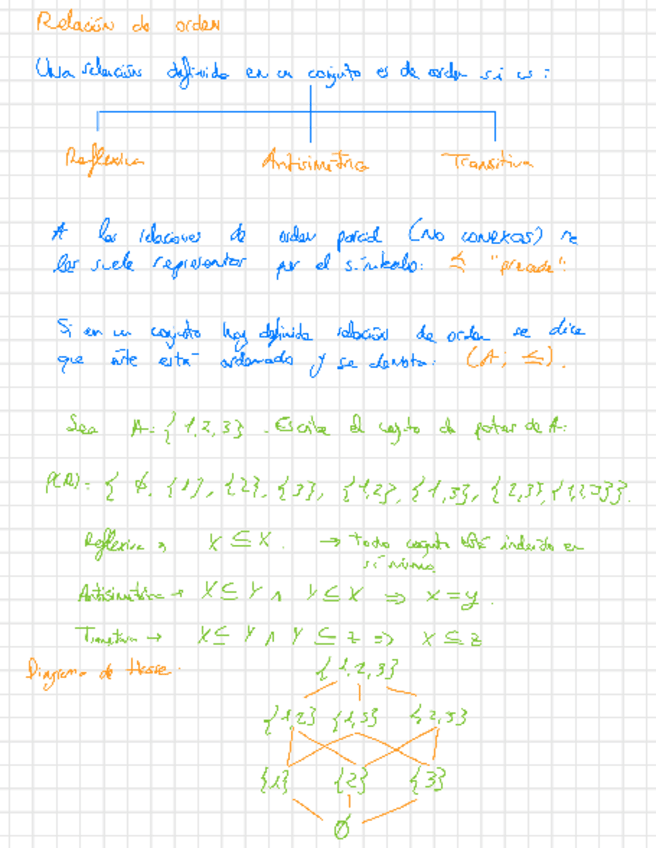 Relación de orden
Una relación definida en un conjunto es de orden si es:
Reflexiva Antisimétrica Transitiva
A las relaciones de orden parcial (no conexas) se
les suele representar por el símbolo: ⪯ "precede".
Si en un conjunto hay definida relación de orden se dice
que este está ordenado y se denota: (A; ≤).
Sea A={1,2,3}. Escribe el cojto de partes de A:
P(A)={ ∅, {1}, {2}, {3}, {1,2}, {1,3}, {2,3}, {1,2,3}}.
Reflexiva → X ⊆ X → todo conjunto está incluido en
sí mismo
Antisimétrica → X ⊆ Y ∧ Y ⊆ X ⇒ X = Y.
Transitiva → X ⊆ Y ∧ Y ⊆ Z ⇒ X ⊆ Z
Diagrama de Hasse.
{1,2,3}
{1,2} {1,3} {2,3}
{1} {2} {3}
∅